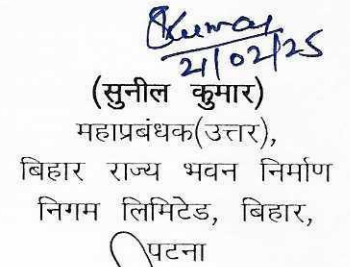 Skumar
21/02/25
(सुनील कुमार)
महाप्रबंधक(उत्तर),
बिहार राज्य भवन निर्माण
निगम लिमिटेड, बिहार,
पटना